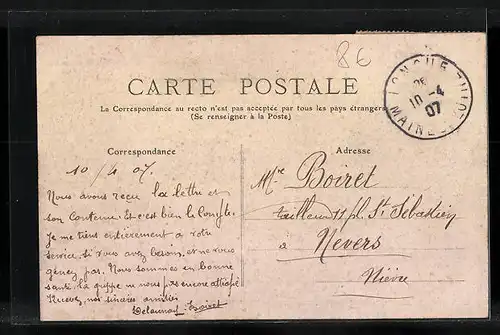 86
CARTE POSTALE
La Correspondance au recto n'est pas acceptée par tous les pays étrangers
(Se renseigner à la Poste)
Correspondance
10/4 07.
Nous avons reçu la lettre et
son contenu. Et c'est bien le Compte.
Je me tiens entièrement a votre
service, si vous avez besoin, et ne vous
genez pas. Nous sommes en bonne
santé, la grippe ne nous pas encore attrapé
Recevez, nos sincères amitiés
Delaunay-Boiret
Adresse
Mr Boiret
tailleur 11 pl. St Sébastien
à Nevers
Nièvre
10 -4
07
MAINE